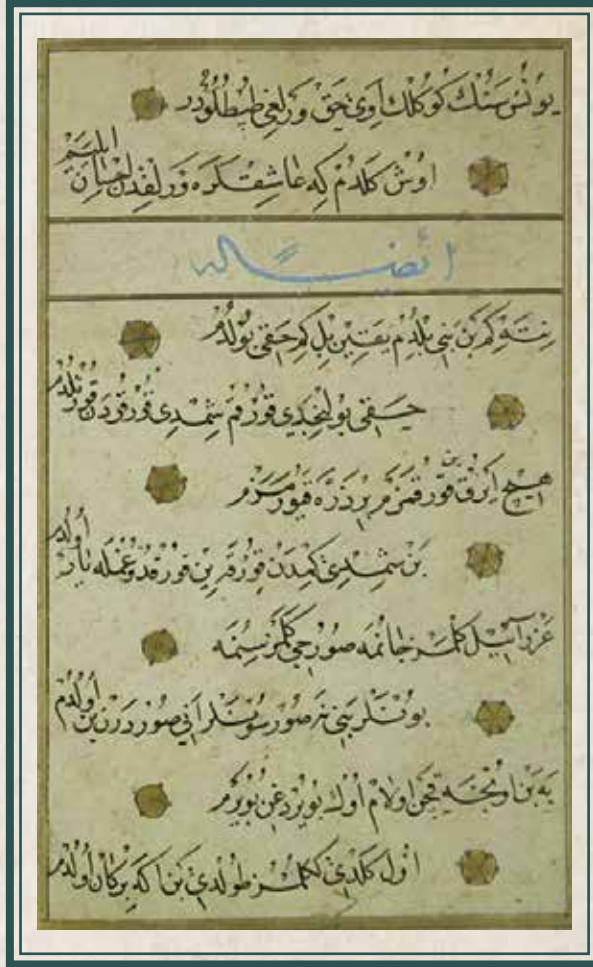 یونس سنك كوكلك اوی حق ورلغی طپطلودر
اوش كلدم كه عاشقلره ورلغدن
ایضا له
نته كم بن بنی بلدم یقین بل كم حقی بولدم
حقی بولنجیدی قورقم شمدی قورقودن قورتلدم
هیچ قورقمزم بر ذره قیورمزم
بن شمدی كمدن قورقرین قورقدوغمله یار اولدم
عزرآئیل كلمز جانمه صورجی كلمز سنمه
بونلر بنی نه صور سونلر آنی صوردرن بن اولدم
یه بن اونجه قچن اولام اول بویردغن بویرم
اول كلدی كلمز طولدی بن اكه بر كان اولدم